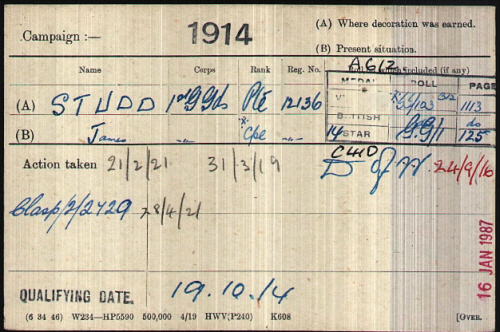 Campaign :— 1914 (A) Where decoration was earned.
(B) Present situation.
A612
Name Corps Rank Reg. No. included (if any)
MEDAL ROLL PAGE
(A) STUDD 1st G Gds Pte 12136 V 1113
*
(B) James " Cpl " BRITISH do
14 STAR G.G/1 125
Action taken 21/2/21 31/3/19 D of W 24/9/16
Clasp/2/2729 28/4/21
16 JAN 1987
QUALIFYING DATE. 19.10.14
(6 34 46) W234—HP5590 500,000 4/19 HWV(P240) K608 [OVER.